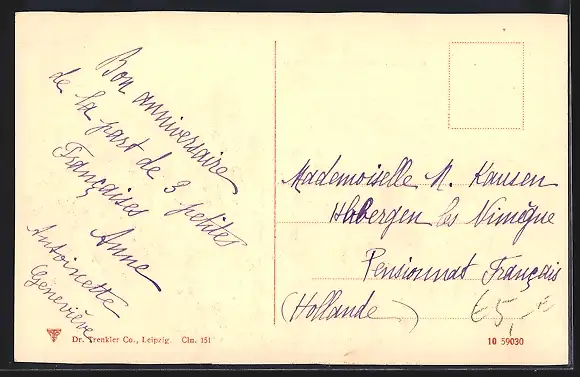 Bon anniversaire
de la part de 3 petites
Françaises Anne
Antoinette
Geneviève
Mademoiselle N. Kausen
Hbergen les Nimègue
Pensionnat Français
(Hollande)
€5,-
Dr. Trenkler Co., Leipzig. Cln. 151
10 59030